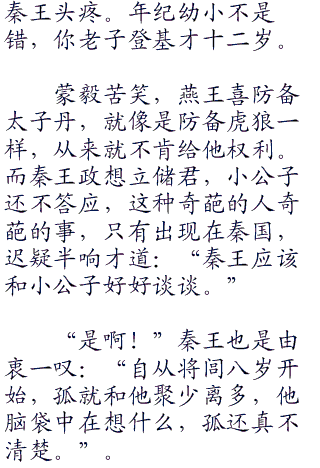 秦王头疼。年纪幼小不是
错，你老子登基才十二岁。
蒙毅苦笑，燕王喜防备
太子丹，就像是防备虎狼一
样，从来就不肯给他权利。
而秦王政想立储君，小公子
还不答应，这种奇葩的人奇
葩的事，只有出现在秦国，
迟疑半响才道：“秦王应该
和小公子好好谈谈。”
“是啊！”秦王也是由
衷一叹：“自从将闾八岁开
始，孤就和他聚少离多，他
脑袋中在想什么，孤还真不
清楚。”。